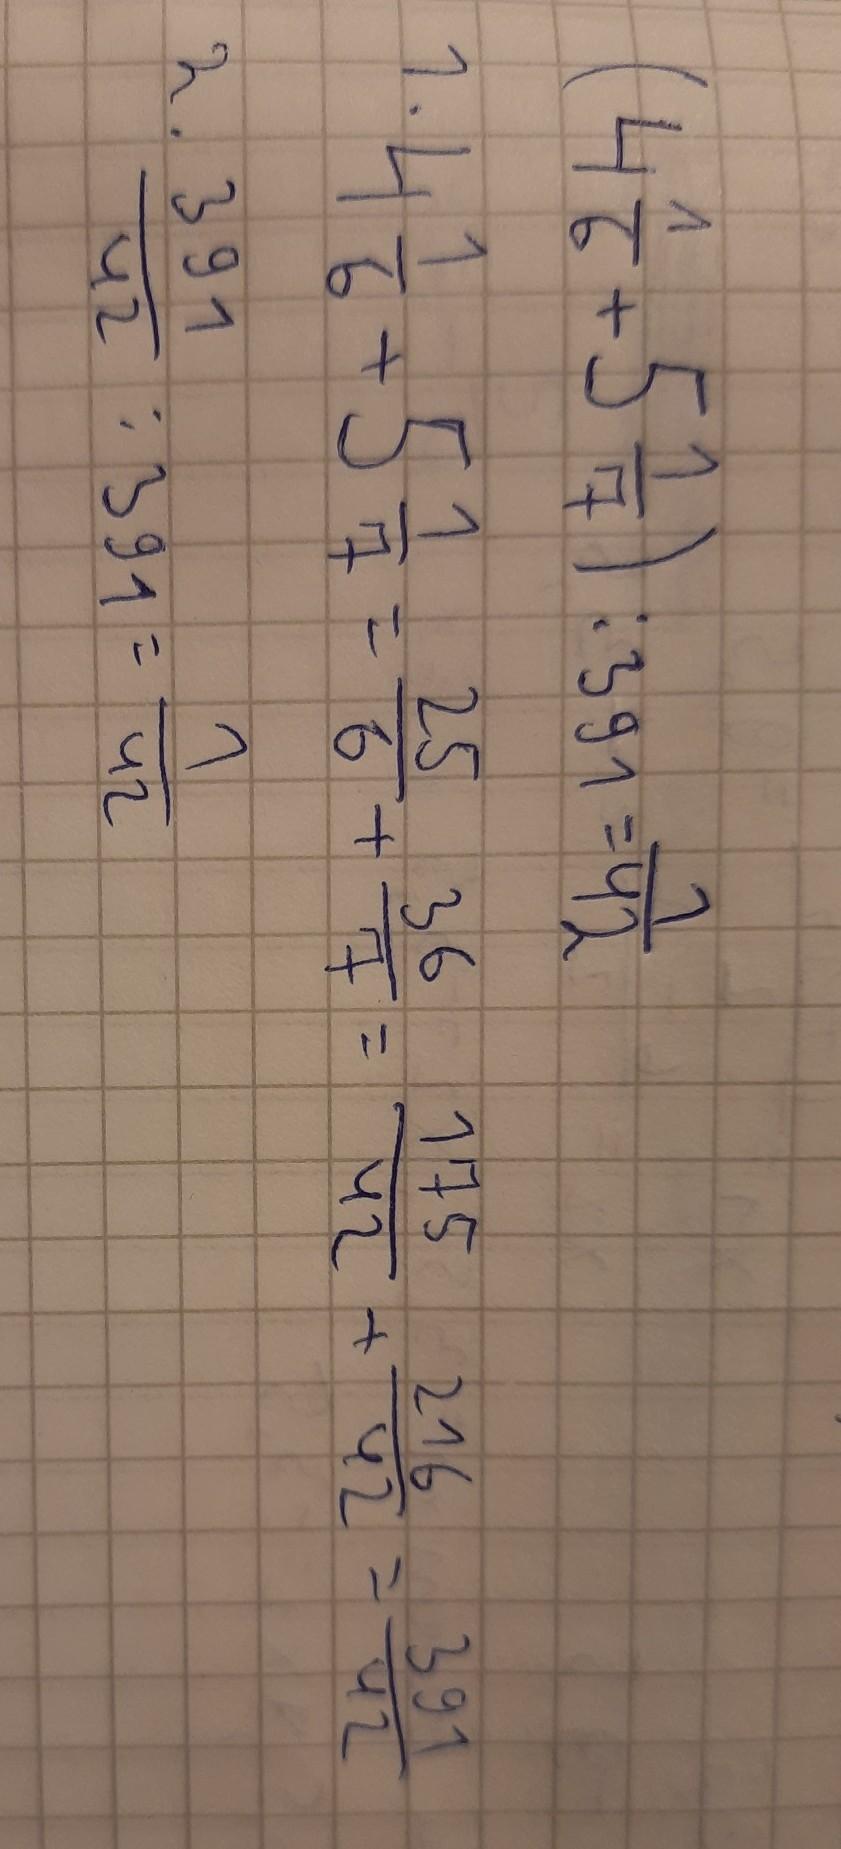 (4 1/6 + 5 1/7) : 391 = 1/42
1. 4 1/6 + 5 1/7 = 25/6 + 36/7 = 175/42 + 216/42 = 391/42
2. 391/42 : 391 = 1/42